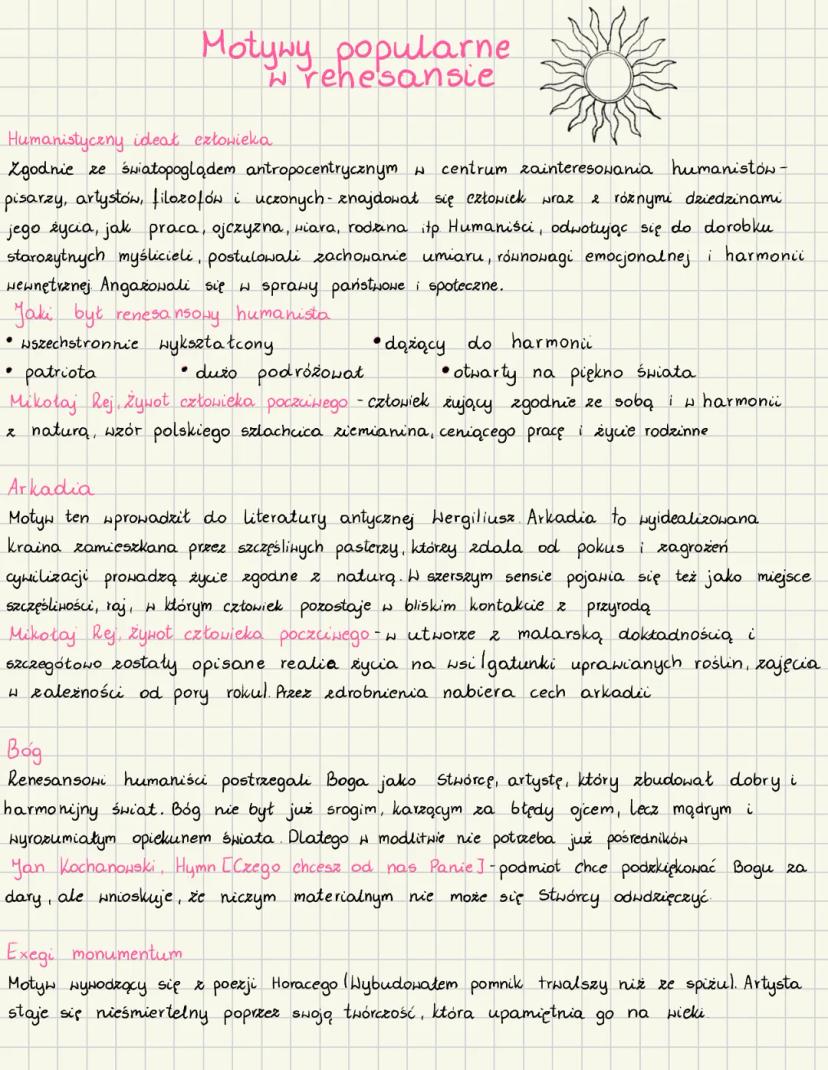 Motywy popularne
w renesansie
Humanistyczny ideał człowieka
Zgodnie ze światopoglądem antropocentrycznym w centrum zainteresowania humanistów -
pisarzy, artystów, filozofów i uczonych - znajdował się człowiek wraz z różnymi dziedzinami
jego życia, jak praca, ojczyzna, wiara, rodzina itp. Humaniści, odwołując się do dorobku
starożytnych myślicieli, postulowali zachowanie umiaru, równowagi emocjonalnej i harmonii
wewnętrznej. Angażowali się w sprawy państwowe i społeczne.
Jaki był renesansowy humanista
• wszechstronnie wykształcony • dążący do harmonii
• patriota • dużo podróżował • otwarty na piękno świata
Mikołaj Rej, Żywot człowieka poczciwego - człowiek żyjący zgodnie ze sobą i w harmonii
z naturą, wzór polskiego szlachcica ziemianina, ceniącego pracę i życie rodzinne
Arkadia
Motyw ten wprowadził do literatury antycznej Wergiliusz. Arkadia to wyidealizowana
kraina zamieszkana przez szczęśliwych pasterzy, którzy zdala od pokus i zagrożeń
cywilizacji prowadzą życie zgodne z naturą. W szerszym sensie pojawia się też jako miejsce
szczęśliwości, raj, w którym człowiek pozostaje w bliskim kontakcie z przyrodą
Mikołaj Rej, Żywot człowieka poczciwego - w utworze z malarską dokładnością i
szczegółowo zostały opisane realia życia na wsi (gatunki uprawianych roślin, zajęcia
w zależności od pory roku). Przez zdrobnienia nabiera cech arkadii
Bóg
Renesansowi humaniści postrzegali Boga jako Stwórcę, artystę, który zbudował dobry i
harmonijny świat. Bóg nie był już srogim, karzącym za błędy ojcem, lecz mądrym i
wyrozumiałym opiekunem świata. Dlatego w modlitwie nie potrzeba już pośredników
Jan Kochanowski, Hymn [Czego chcesz od nas Panie] - podmiot chce podziękować Bogu za
dary, ale wnioskuje, że niczym materialnym nie może się Stwórcy odwdzięczyć.
Exegi monumentum
Motyw wywodzący się z poezji Horacego (Wybudowałem pomnik trwalszy niż ze spiżu). Artysta
staje się nieśmiertelny poprzez swoją twórczość, która upamiętnia go na wieki